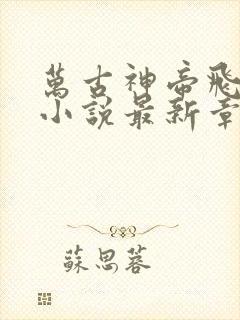 萬古神帝飛
小說最新章
蘇思蓉